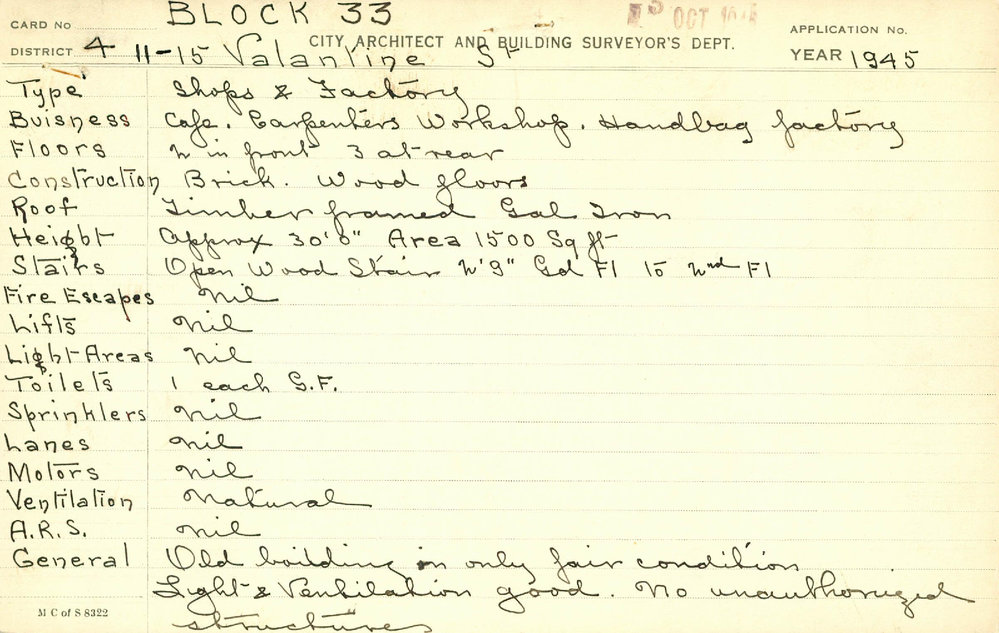 CARD No BLOCK 33
OCT 1945
CITY ARCHITECT AND BUILDING SURVEYOR'S DEPT.
APPLICATION No.
DISTRICT 4 11-15 Valantine St
YEAR 1945
Type Shops & Factory
Buisness Cafe. Carpenters Workshop. Handbag factory
Floors 2 in front 3 at rear
Construction Brick. Wood floors
Roof Timber framed Gal Iron
Height Approx 30'0" Area 1500 Sq ft
Stairs Open Wood Stair 2'9" Gd Fl to 2nd Fl
Fire Escapes Nil
Lifts Nil
Light Areas Nil
Toilets 1 each G.F.
Sprinklers Nil
Lanes Nil
Motors Nil
Ventilation Natural
A.R.S. Nil
General Old building in only fair condition
Light & Ventilation good. No unauthorized
structures
M C of S 8322